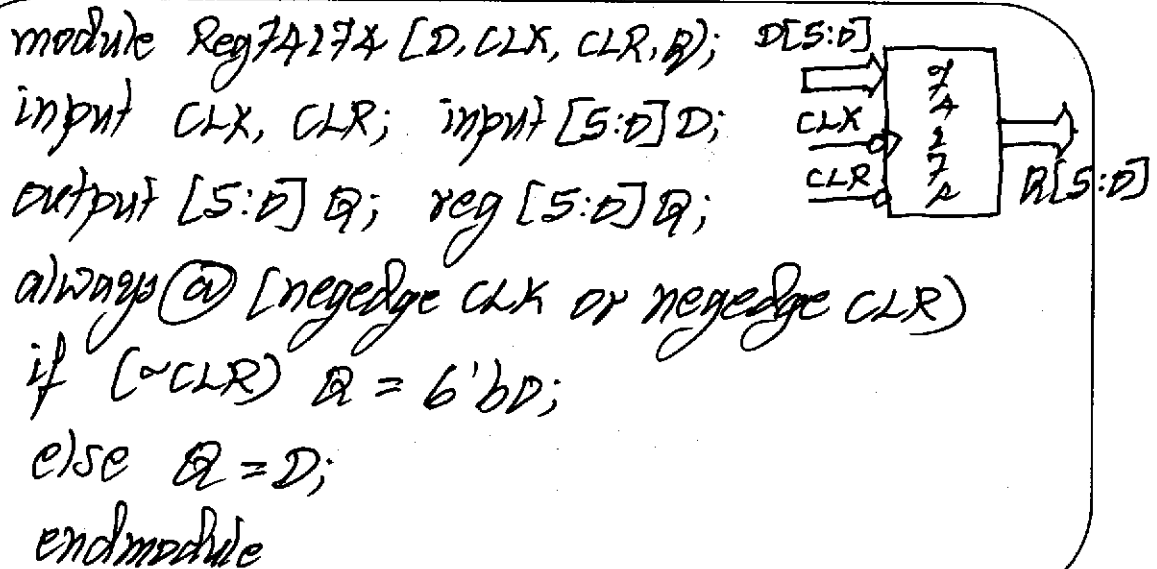 module Reg74174 (D, CLK, CLR, Q);
input CLK, CLR; input [5:0] D;
output [5:0] Q; reg [5:0] Q;
always @ (negedge CLK or negedge CLR)
if (~CLR) Q = 6'b0;
else Q = D;
endmodule
D[5:0]
CLK
CLR
74174
Q[5:0]